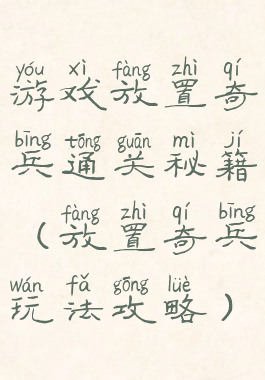 yóu xì fàng zhì qí
游戏放置奇
bīng tōng guān mì jí
兵通关秘籍
fàng zhì qí bīng
（放置奇兵
wán fǎ gōng lüè
玩法攻略）